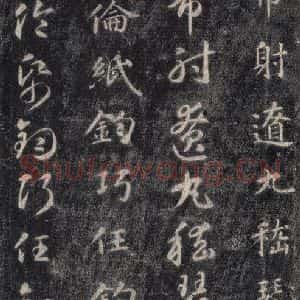 布射遼丸嵇琴
布射遼丸嵇琴
倫紙鈞巧任釣
倫紙鈞巧任釣
Shufawang.CN